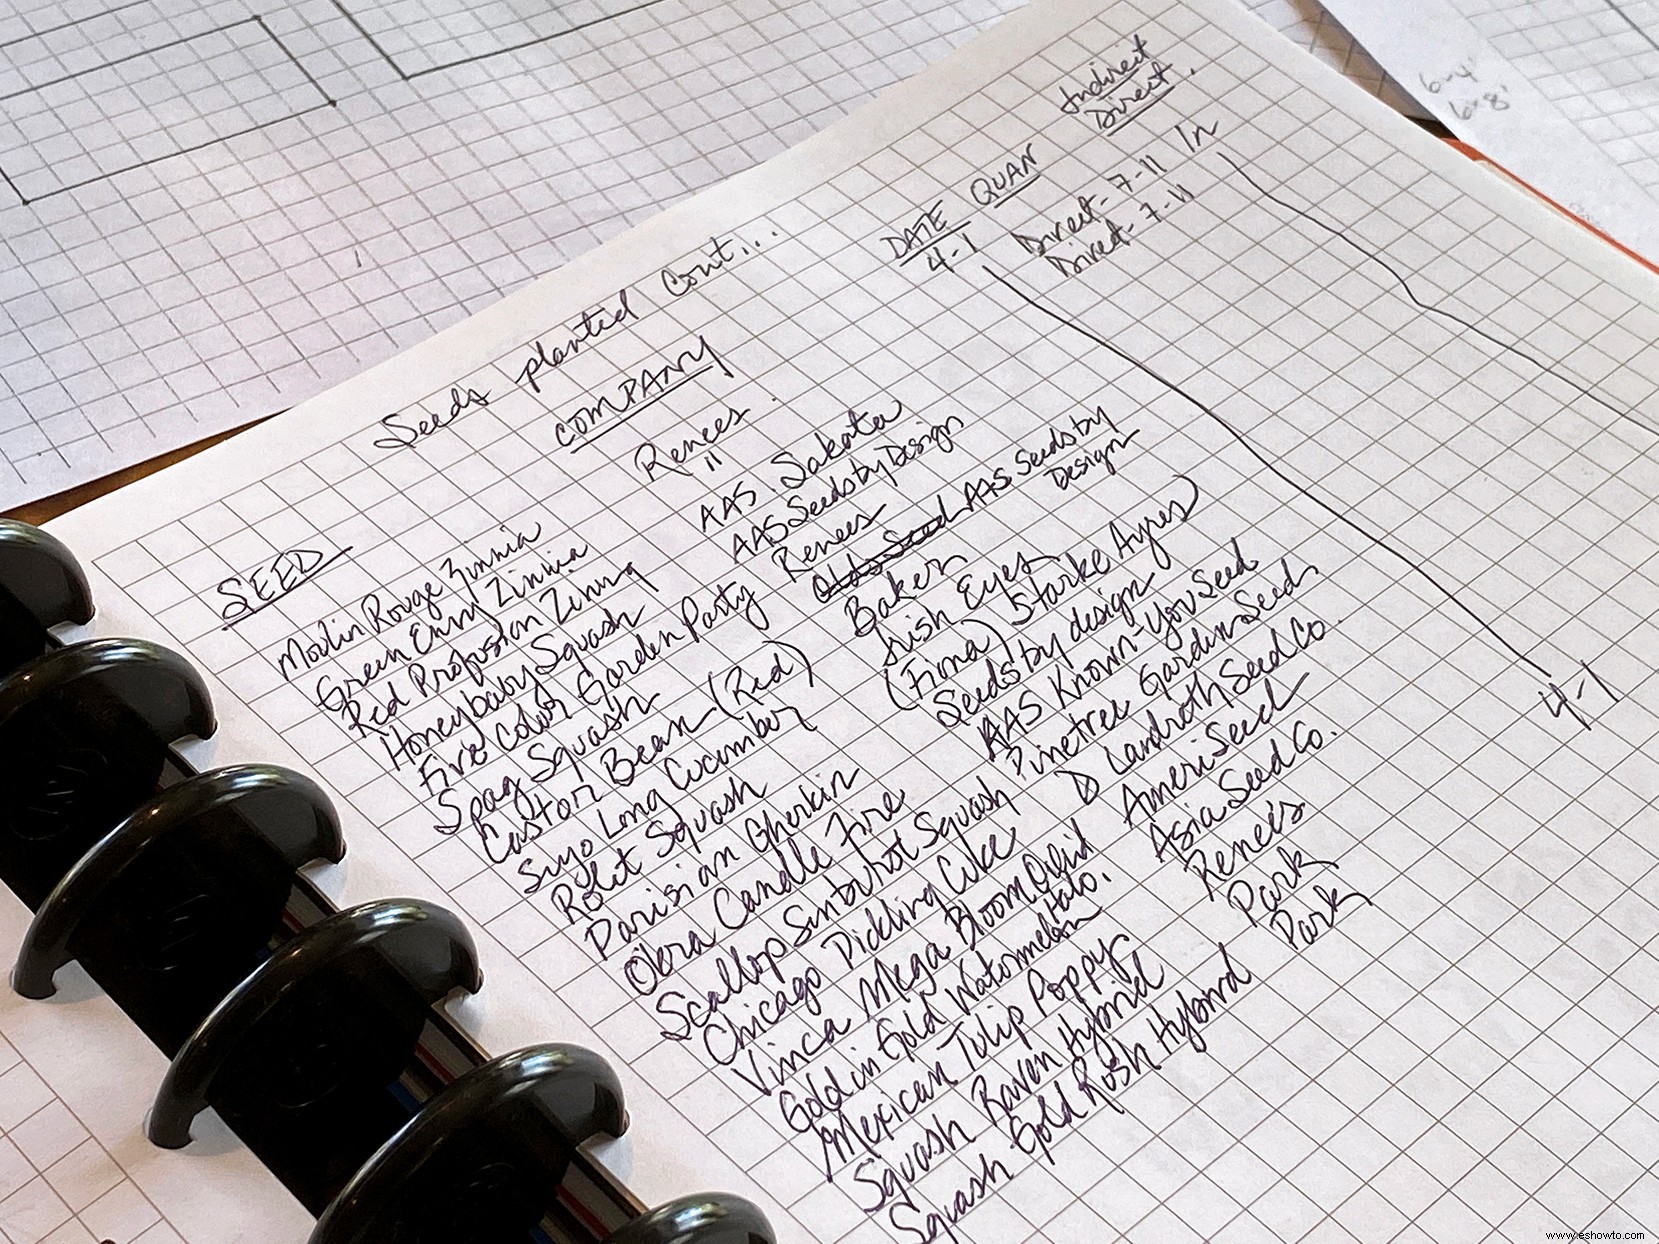 Seeds planted cont...
SEED COMPANY DATE QUAN Indirect
Direct.
Moulin Rouge Zinnia Renees 4-1 Direct- 7-11 In
Green Envy Zinnia " Direct- 7-11
Red Profusion Zinnia AAS Sakata
Honeybaby Squash AAS Seeds by Design
Fire Color Garden Party Renees
Spag Squash AAS Seeds by Design
Castor Bean (Red) Baker
Suyo Long Cucumber Irish Eyes
Squash (Fima) Starke Ayres)
Parisian Gherkin Seeds by design
Okra Candle Fire AAS Known-You Seed
Scallop Sunburst Squash Pinetree Garden Seeds
Chicago Pickling Cuke D Landroth Seed Co.
Vinca Mega Bloom Orchid Halo. Ameri Seed
Gold in Gold Watermelon Asia Seed Co.
Mexican Tulip Poppy Renee's
Squash Raven Hybrid Park
Squash Gold Rush Hybrid Park
4-1
6-4'
6-8'
www.eshowto.com